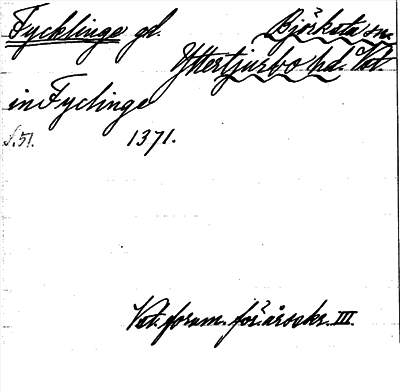 Tycklinge gd. Björksta sn.
Yttertjurbo hd. Vst.
in Tyclinge
s. 51. 1371.
Vst. fornm. för. årsskr. III.